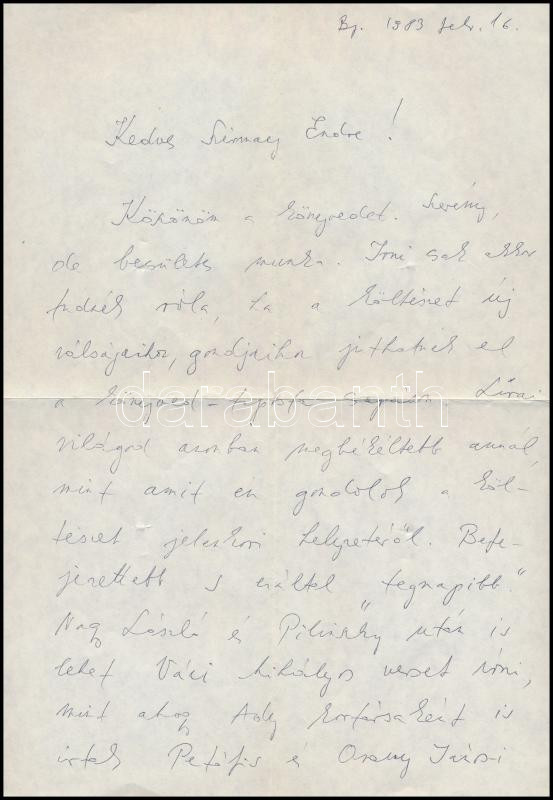 Bp. 1983 febr. 16.
Kedves Szirmay Endre!
Köszönöm a könyvedet. Szerény,
de becsületes munka. Írni csak akkor
tudnék róla, ha a költészet új
válságaihoz, gondjaihoz juthatnék el
a könyved-taposta csapáson. Lírai
világod azonban megbékéltebb annál,
mint amit én gondolok a köl-
tészet jelenkori helyzetéről. Befe-
jezettebb s ezáltal "tegnapibb".
Nagy László és Pilinszky után is
lehet Váci Mihályos verset írni,
mint ahogy Ady kortársaként is
írtak Petőfis és Arany Jánosi
darabanth